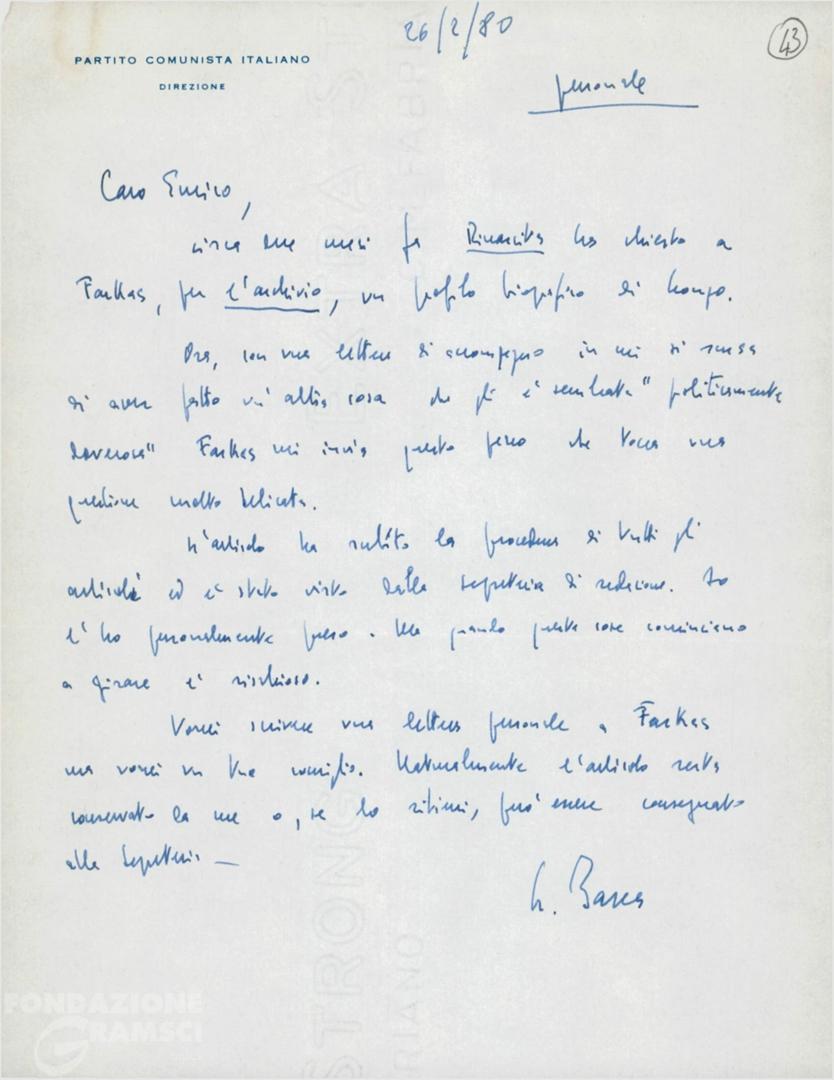 26/2/80
43
PARTITO COMUNISTA ITALIANO
DIREZIONE
personale
Caro Enrico,
circa due mesi fa Rinascita ha chiesto a
Farkas, per l'archivio, un profilo biografico di Longo.
Ora, con una lettera di accompagno in cui si scusa
di aver fatto un'altra cosa che gli è sembrata "politicamente
doverosa" Farkas mi invia questo pezzo che tocca una
questione molto delicata.
L'articolo ha subìto la procedura di tutti gli
articoli ed è stato visto dalla segreteria di redazione. Io
l'ho personalmente preso. Ma quando queste cose cominciano
a girare è rischioso.
Vorrei scrivere una lettera personale a Farkas
ma vorrei un tuo consiglio. Naturalmente l'articolo resta
conservato da me o, se lo ritieni, può essere consegnato
alla Segreteria —
L. Barca
STRONG
EXTRA ST
FABRIANO
FONDAZIONE
GRAMSCI